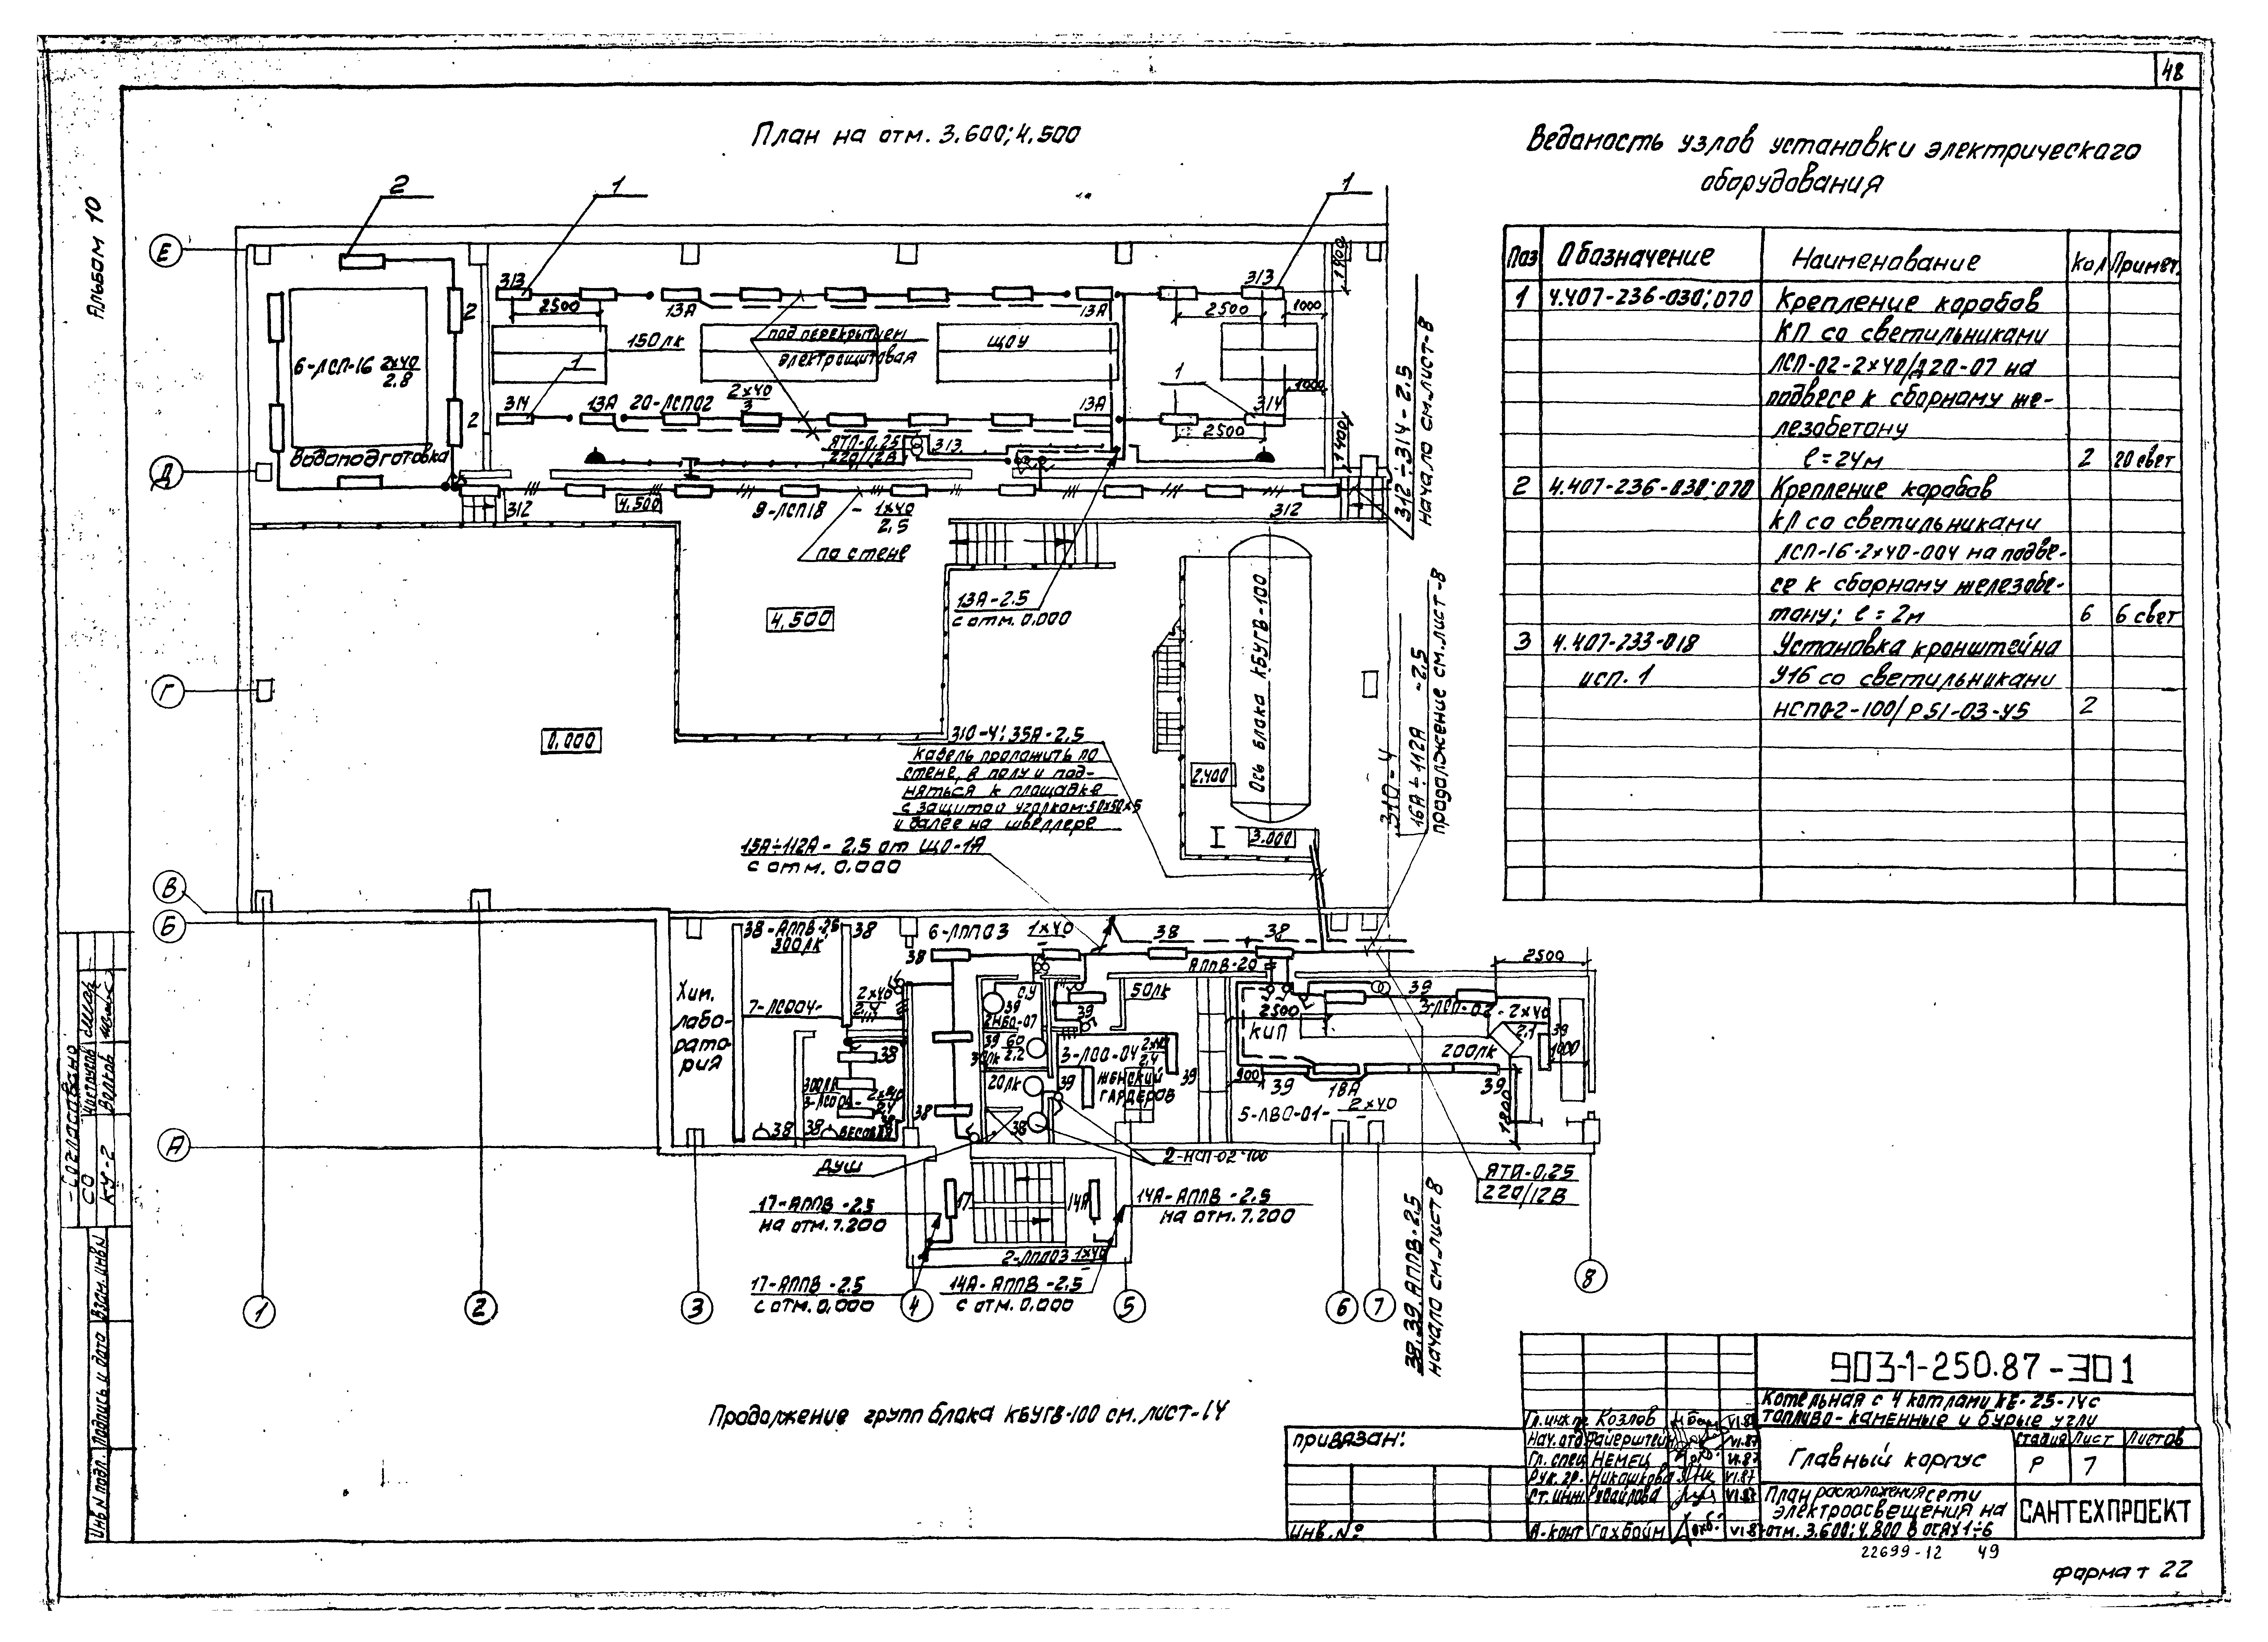 48
Альбом 10
План на отм. 3.600; 4.500
Ведомость узлов установки электрического
оборудования
Поз
Обозначение
Наименование
Кол
Примеч.
1
4.407-236-030; 070
Крепление коробов
КП со светильниками
ЛСП-02-2х40/Д20-07 на
подвесе к сборному же-
лезобетону
ℓ = 24м
2
20 свет
2
4.407-236-030; 070
Крепление коробов
КЛ со светильниками
ЛСП-16-2х40-004 на подве-
се к сборному железобе-
тону; ℓ = 2м
6
6 свет
3
4.407-233-018
Установка кронштейна
исп. 1
У16 со светильниками
НСП02-100/Р51-03-У5
2
2
1
1
Е
Д
Г
В
Б
А
313
313
2500
2500
1000
1400
13А
13А
2
2
6-ЛСП-16 2х40
2.8
150лк
под перекрытием
электрощитовая
ЩОУ
1
1
1000
314
13А
20-ЛСП02
2х40
3
13А
314
2500
1400
ЯТП-0.25
220/12В
313
Водоподготовка
312
4.500
9-ЛСП18 - 1х40
2.5
312
по стене
312÷314-2.5
начало см. лист-8
13А-2.5
с отм. 0.000
4.500
0.000
Ось блока КБУГВ-100
2.400
3.000
310-4; 35А-2.5
Кабель проложить по
стене, в полу и под-
няться к площадке
с защитой уголком 50х50х5
и далее на швеллере
310-4
16А÷112А -2.5
продолжение см. лист-8
15А÷112А-2.5 от ЩО-1А
с отм. 0.000
38-АППВ-2.5
300лк
38
6-ЛПП03 1х40
38
38
38
АППВ-20
2500
Хим.
лабо-
рато-
рия
7-ЛСО04-
2х40
2.4
С.У
39
2НБО-07
39 60
2.2
50лк
39
3-ЛОО-04 2х40
2.4
39
2500
КИП
39
3-ЛСП-02-2х40
2.1
39
1000
200лк
38
300лк
3-ЛСО04-
2х40
2.4
38
20лк
39
ЖЕНСКИЙ
ГАРДЕРОБ
900
39
18А
39
5-ЛВО-01- 2х40
1800
38
38
ВЕСОВАЯ
38
ДУШ
2-НСП-02-100
ЯТП-0.25
220/12В
17-АППВ-2.5
на отм. 7.200
17
14А
14А-АППВ-2.5
на отм. 7.200
2-ЛПП03 1х40
17-АППВ-2.5
с отм. 0.000
14А-АППВ-2.5
с отм. 0.000
38, 39. АППВ-2.5
начало см. лист 8
1
2
3
4
5
6
7
8
Продолжение групп блока КБУГВ-100 см. лист-14
903-1-250.87-ЭО1
Котельная с 4 котлами КЕ-25-14с
топливо-каменные и бурые угли
Гл. инж. пр. Козлов VI.87
Нач. отд. Файерштейн VI.87
Гл. спец НЕМЕЦ VI.87
Рук. гр. Никашкова VI.87
Ст. инж. VI.87
Н-конт Гохбойм VI.87
Главный корпус
Стадия
Лист
Листов
Р
7
План расположения сети
электроосвещения на
отм. 3.600; 4.800 в осях 1÷6
САНТЕХПРОЕКТ
привязан:
Инв. №:
22699-12 49
формат 22
Согласовано
СО
КУ-2
Волков
Взам. инв N
Подпись и дата
Инв N подл.